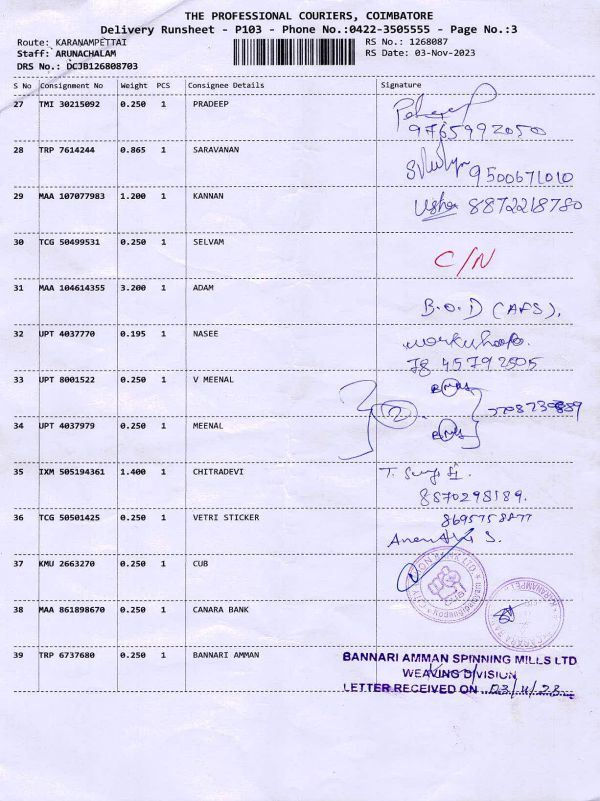 THE PROFESSIONAL COURIERS, COIMBATORE
Delivery Runsheet - P103 - Phone No.:0422-3505555 - Page No.:3
Route: KARANAMPETTAI RS No.: 1268087
Staff: ARUNACHALAM RS Date: 03-Nov-2023
DRS No.: DCJB126808703
S No Consignment No Weight PCS Consignee Details Signature
27 TMI 30215092 0.250 1 PRADEEP
9765992050
28 TRP 7614244 0.865 1 SARAVANAN
9500671010
29 MAA 107077983 1.200 1 KANNAN
Usha 8872218780
30 TCG 50499531 0.250 1 SELVAM
C/N
31 MAA 104614355 3.200 1 ADAM
B.O.D (AFS),
32 UPT 4037770 0.195 1 NASEE
78 45792505
33 UPT 8001522 0.250 1 V MEENAL
2
34 UPT 4037979 0.250 1 MEENAL
35 IXM 505194361 1.400 1 CHITRADEVI
8870298189.
36 TCG 50501425 0.250 1 VETRI STICKER
37 KMU 2663270 0.250 1 CUB
38 MAA 861898670 0.250 1 CANARA BANK
39 TRP 6737680 0.250 1 BANNARI AMMAN
BANNARI AMMAN SPINNING MILLS LTD
WEAVING DIVISION
LETTER RECEIVED ON 03/11/23